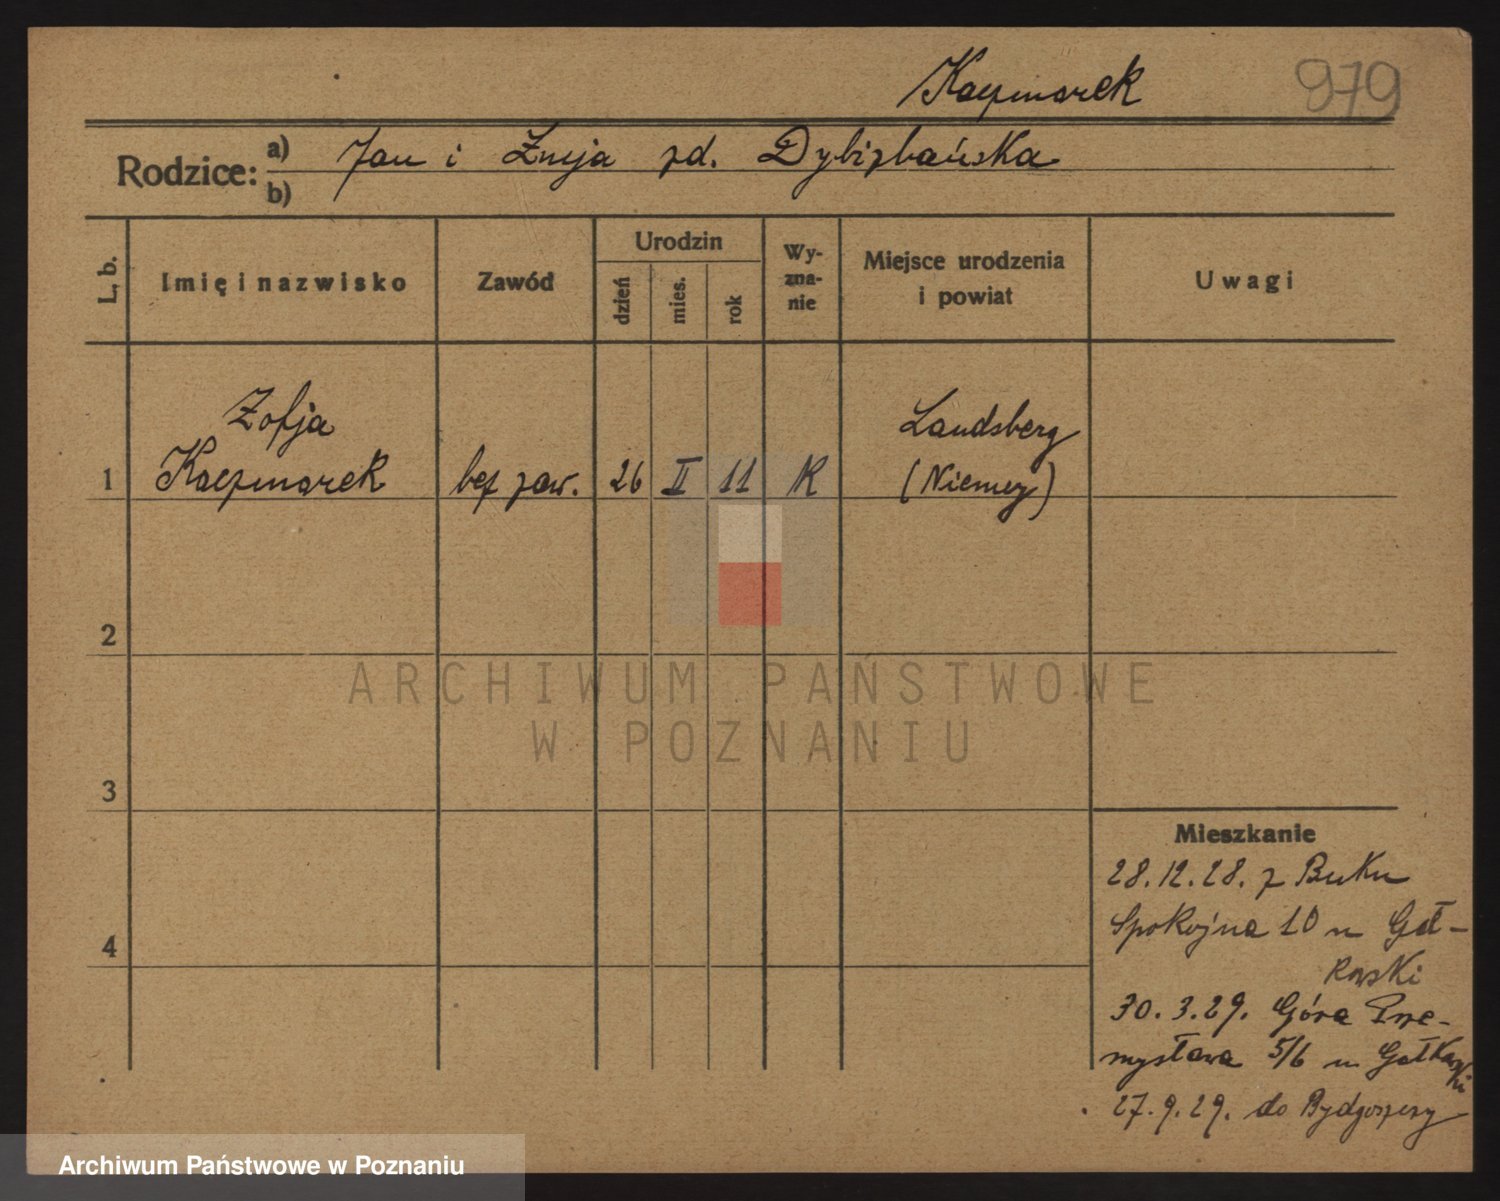 Kaczmarek 979
Rodzice: a) Jan i Łucja zd. Dybizbańska
b)
L. b. Imię i nazwisko Zawód Urodzin dzień mies. rok Wy-zna-nie Miejsce urodzenia i powiat Uwagi
Zofja Landsberg
1 Kaczmarek bez zaw. 26 II 11 R (Niemcy)
2
ARCHIWUM PAŃSTWOWE
W POZNANIU
3
Mieszkanie
28.12.28. z Buku
4 Spokojna 10 u Gał-
kowski
30.3.29. Góra Prze-
mysława 5/6 u Gałkowski
27.9.29. do Bydgoszczy
Archiwum Państwowe w Poznaniu